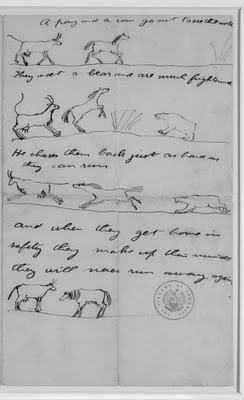 A pony and a cow go out to see the world
They met a bear and are much frightened
He chases them back just as hard as
they can run
and when they get home in
safety they make up their minds
they will never run away again